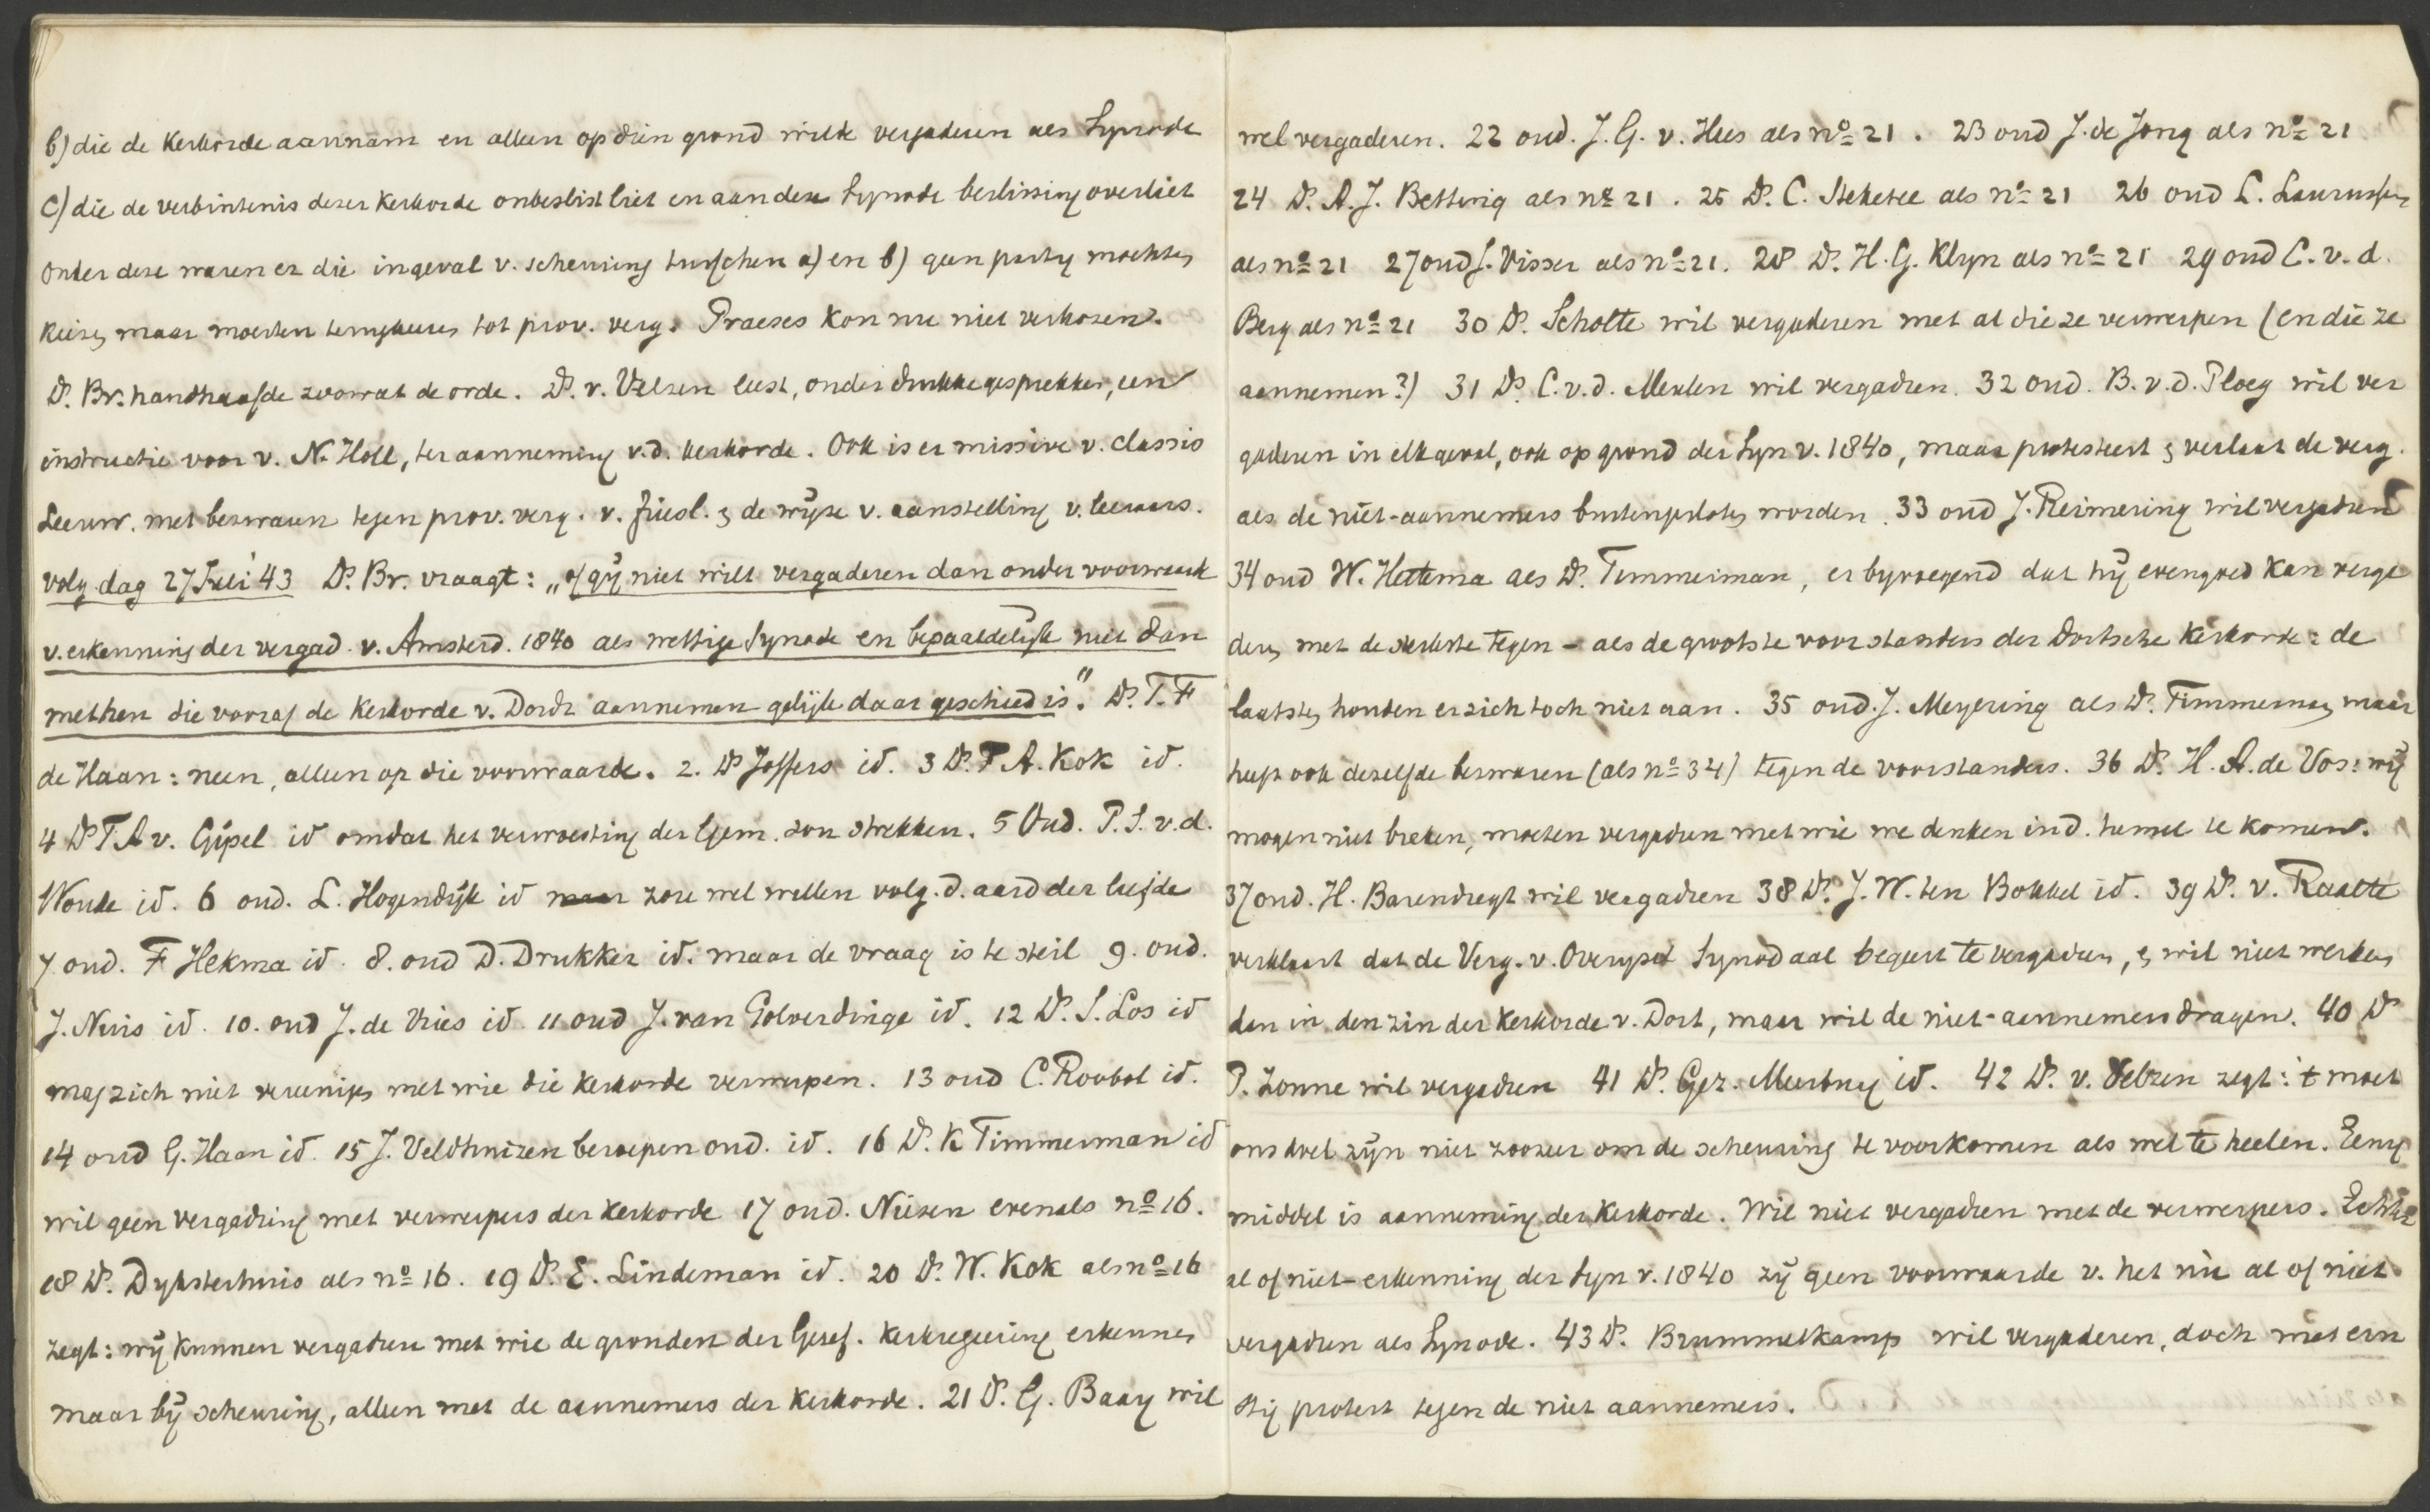 b) die de Kerkorde aannam en alleen op dien grond wilde vergaderen als Synode
c) die de verbintenis dezer Kerkorde onbeslist liet en aan deze Synode beslissing overliet
onder deze waren er die ingeval v. scheuring tusschen a) en b) geen partij mochten
kiezen, maar moesten terugkeeren tot prov. verg. Praeses kon nu niet verkozen.
Ds. Br. handhaafde zoowat de orde. Ds. v. Velzen leest, onder drukke gesprekken, een
instructie voor v. N. Holl, ter aanneming v.d. kerkorde. Ook is er missive v. classis
Leeuw. met bezwaren tegen prov. verg. v. Friesl. & de wijze v. aanstelling v. leeraars.
volg. dag 27 Juli '43 Ds. Br. vraagt: „of gij niet wilt vergaderen dan onder voorwaark
v. erkenning der vergad. v. Amsterd. 1840 als wettige Synode en bepaaldelijk niet dan
met hen die vooraf de Kerkorde v. Dordr aannemen gelijk daar geschied is". Ds. T. F
de Haan: neen, alleen op die voorwaarde. 2. Ds Joffers id. 3 Ds. F A. Kok id.
4 Ds T. A v. Gijsel id omdat het verwoesting der Gem. zou strekken. 5 Oud. P. S. v.d.
Woude id. 6 oud. L. Hogendijk id maar zou wel willen volg. d. aard der liefde
7 oud. F Hekma id. 8. oud D. Drukker id. maar de vraag is te steil 9. oud.
J. Nuis id. 10. oud J. de Vries id 11 oud J. van Golverdinge id. 12 Ds. S. Los id
mag zich niet vereenigen met wie die kerkorde verwerpen. 13 oud C. Roubol id.
14 oud G. Haan id. 15 J. Veldhuizen beroepen oud. id. 16 Ds. K Timmerman id
wil geen vergadring met verwerpers der kerkorde 17 oud. Niezen evenals no 16.
18 Ds. Dyksterhuis als no 16. 19 Ds. E. Lindeman id. 20 Ds. W. Kok als no 16
zegt: wij kunnen vergadren met wie de gronden der Geref. Kerkregeering erkennen
maar bij scheuring, alleen met de aannemers der Kerkorde. 21 Ds. G. Baay wil
wel vergaderen. 22 oud. J. G. v. Hees als no 21. 23 oud J. de Jong als no 21
24 Ds. A. J. Betting als no 21. 25 Ds. C. Steketee als no 21 26 oud L.
als no 21 27 oud J. Visser als no 21. 28 Ds. H. G. Klyn als no 21 29 oud C. v. d.
Berg als no 21 30 Ds. Scholte wil vergaderen met al die ze verwerpen (en die ze
aannemen?) 31 Ds. C. v. d. Meulen wil vergadren. 32 oud. B. v. d. Ploeg wil ver
gaderen in elk geval, ook op grond der Syn v. 1840, maar protesteert & verlaat de verg.
als de niet-aannemers buitengesloten worden. 33 oud J. Reimering wil vergadren
34 oud W. Hettema als Ds. Timmerman, er byvoegend dat hij evengoed kan verga
deren met de sterkste tegen - als de grootste voorstanders der Dortsche kerkorde: de
laatsten houden er zich toch niet aan. 35 oud. J. Meyering als Ds. Timmerman, maar
heeft ook dezelfde bezwaren (als no 34) tegen de voorstanders. 36 Ds. H. A. de Vos: wij
mogen niet breken, moeten vergadren met wie we denken in d. hemel te komen.
37 oud. H. Barendregt wil vergadren 38 Ds. J. W. ten Bokkel id. 39 Ds. v. Raalte
verklaart dat de Verg. v. Overysel Synodaal begeert te vergadren, & wil niet werken
dan in den zin der Kerkorde v. Dort, maar wil de niet-aannemers dragen. 40 Ds
P. Zonne wil vergadren 41 Ds. Gez. Meerburg id. 42 Ds. v. Velzen zegt: 't moet
ons doel zijn niet zoozeer om de scheuring te voorkomen als wel te heelen. Eenig
middel is aanneming der Kerkorde. Wil niet vergadren met de verwerpers. Echter
al of niet-erkenning der Syn v. 1840 zij geen voorwaarde v. het nu al of niet
vergadren als Synode. 43 Ds. Brummelkamp wil vergaderen, doch met ern
stig protest tegen de niet aannemers.